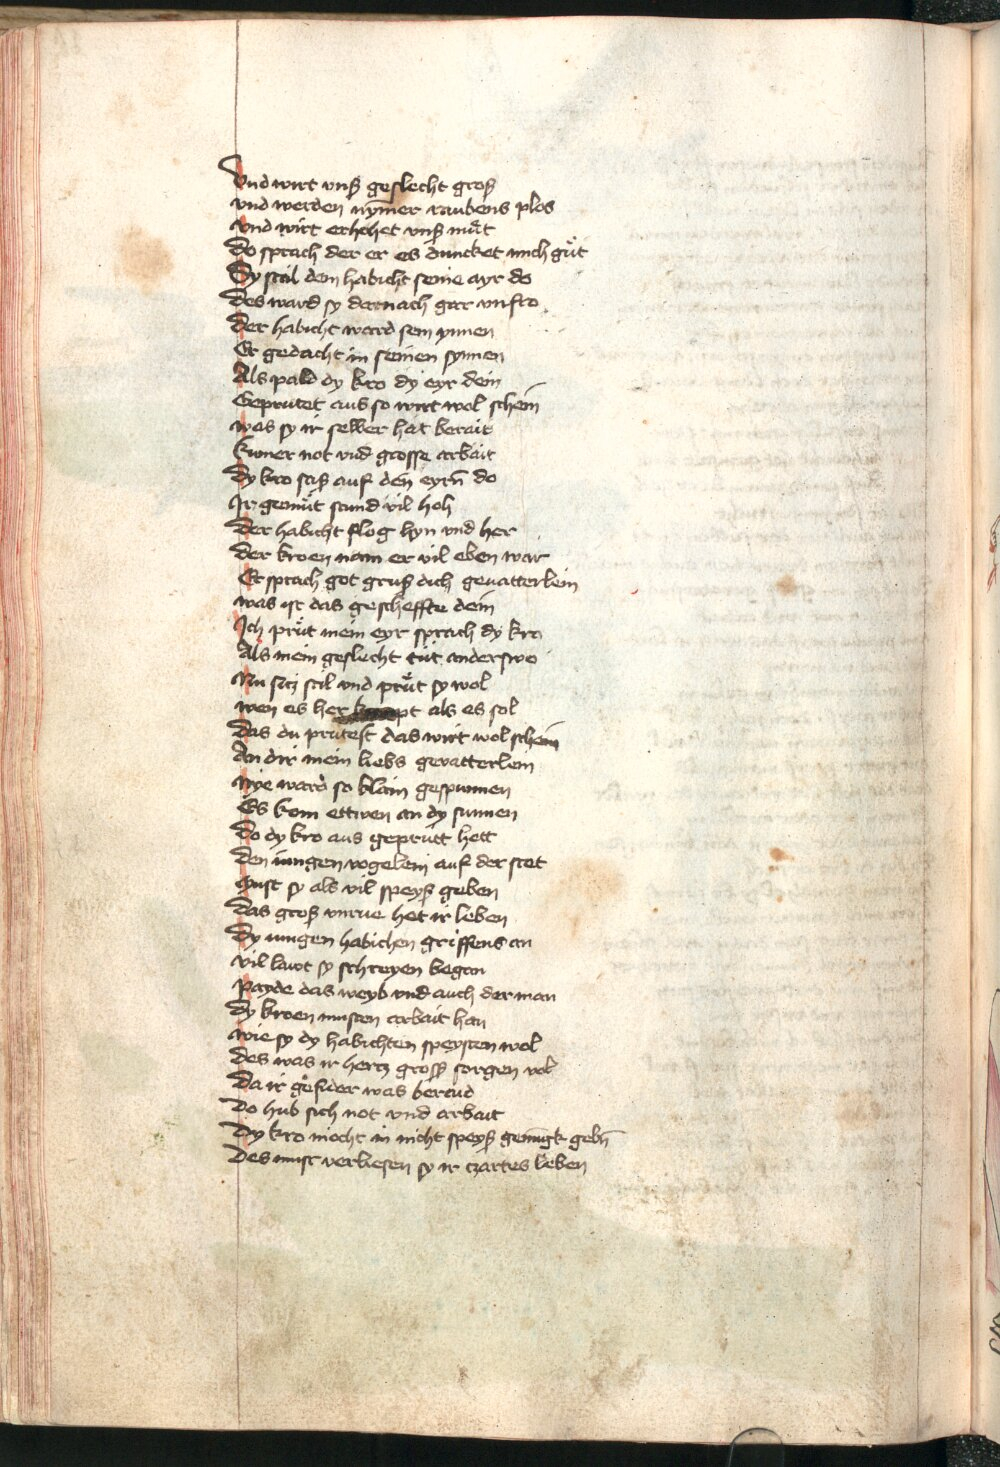 Vnd wirt vnß geslecht groß
vnd werden nymer raubens plos
vnd wirt erhohet vnß mut
Do sprach der er es duncket mich gut
Dy stal dem habicht seine ayr do
Des ward sy dernach gar vnfro
Der habicht ward sein ynnen
Er gedacht in seinen synnen
Als pald dy kro dy eyr dein
Geprutet aus so wirt wol schein
was sy ir selber hat berait
kumer not vnd grosse arbait
Dy kro saß auf den eyrn̄ do
Ir gemut stund vil hoh
Der habicht flog hyn vnd her
Der kroen nam er vil eben war
Er sprach got gruß dich geuatterlein
was ist das gescheffte dein
Ich prut mein eyr sprach dy kro
Als mein geslecht tut anderswo
Nu sicz stil vnd prut sy wol
wen es her als es sol
Das du prutest das wirt wol schein
An dir mein liebs geuatterlein
Nye ward so klain gespunnen
Es kom ettwen an dy sunnen
Do dy kro aus geprutt hett
Den iungen vogelein auf der stet
Must sy als vil speyß geben
Das groß vnrue het ir leben
Dy iungen habichen griffens an
vil lawt sy schreyen began
Payde das weyb vnd auch der man
Dy kroen musten arbait han
wie sy dy habichten speysten wol
Des was ir hertz groß sorgen vol
Da ir gefider was beraid
Do hub sich not vnd arbait
Dy kro mocht in nicht speyß genugk gebn̄
Des must verliesen sy ir czartes leben